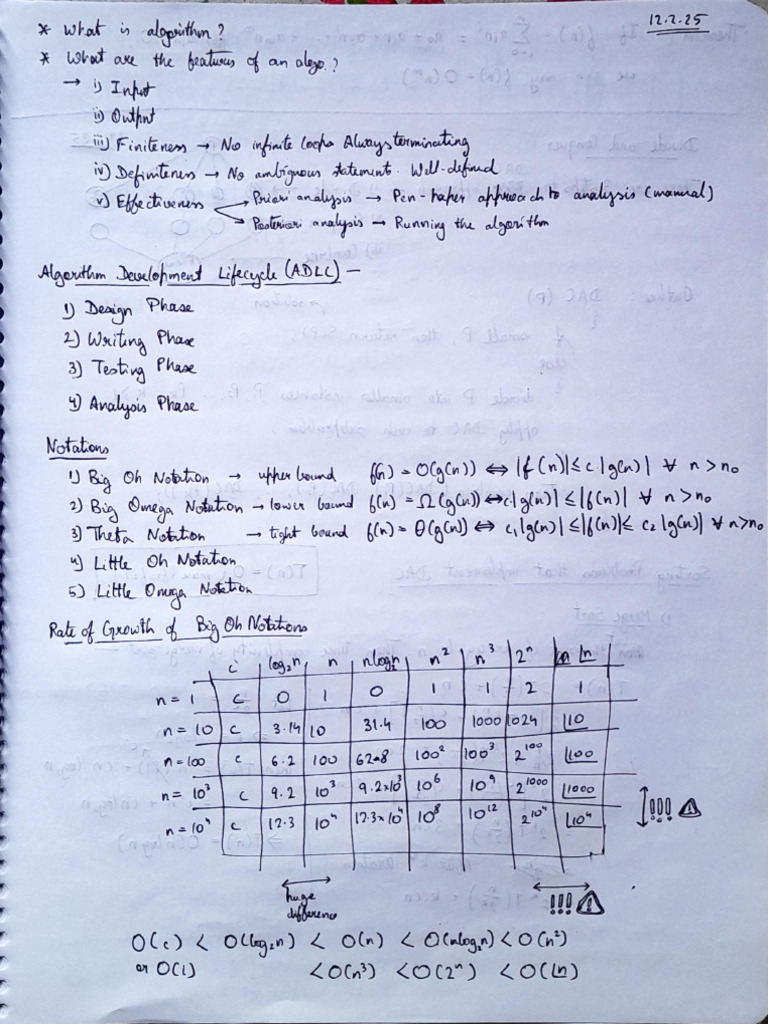 12.2.25
* What is algorithm?
* What are the features of an algo.?
→ i) Input
ii) Output
iii) Finiteness → No infinite loops Always terminating
iv) Definiteness → No ambiguous statement. Well-defined
v) Effectiveness → Priori analysis → Pen-paper approach to analysis (manual)
→ Posteriori analysis → Running the algorithm
Algorithm Development Lifecycle (ADLC) —
1) Design Phase
2) Writing Phase
3) Testing Phase
4) Analysis Phase
Notations
1) Big Oh Notation → upper bound f(n) = O(g(n)) ⇔ |f(n)| ≤ c|g(n)| ∀ n > n₀
2) Big Omega Notation → lower bound f(n) = Ω(g(n)) ⇔ c|g(n)| ≤ |f(n)| ∀ n > n₀
3) Theta Notation → tight bound f(n) = θ(g(n)) ⇔ c₁|g(n)| ≤ |f(n)| ≤ c₂|g(n)| ∀ n > n₀
4) Little Oh Notation
5) Little Omega Notation
Rate of Growth of Big Oh Notations
c log₂n n nlog₂n n² n³ 2ⁿ |n
n = 1 c 0 1 0 1 1 2 1
n = 10 c 3.14 10 31.4 100 1000 1024 |10
n = 100 c 6.2 100 62.8 100² 100³ 2¹⁰⁰ |100
n = 10³ c 9.2 10³ 9.2x10³ 10⁶ 10⁹ 2¹⁰⁰⁰ |1000
n = 10⁴ c 12.3 10⁴ 12.3x10⁴ 10⁸ 10¹² 2^10⁴ |10⁴
!!! ⚠
huge
difference
!!! ⚠
O(c) < O(log₂n) < O(n) < O(nlog₂n) < O(n²)
or O(1) < O(n³) < O(2ⁿ) < O(|n)